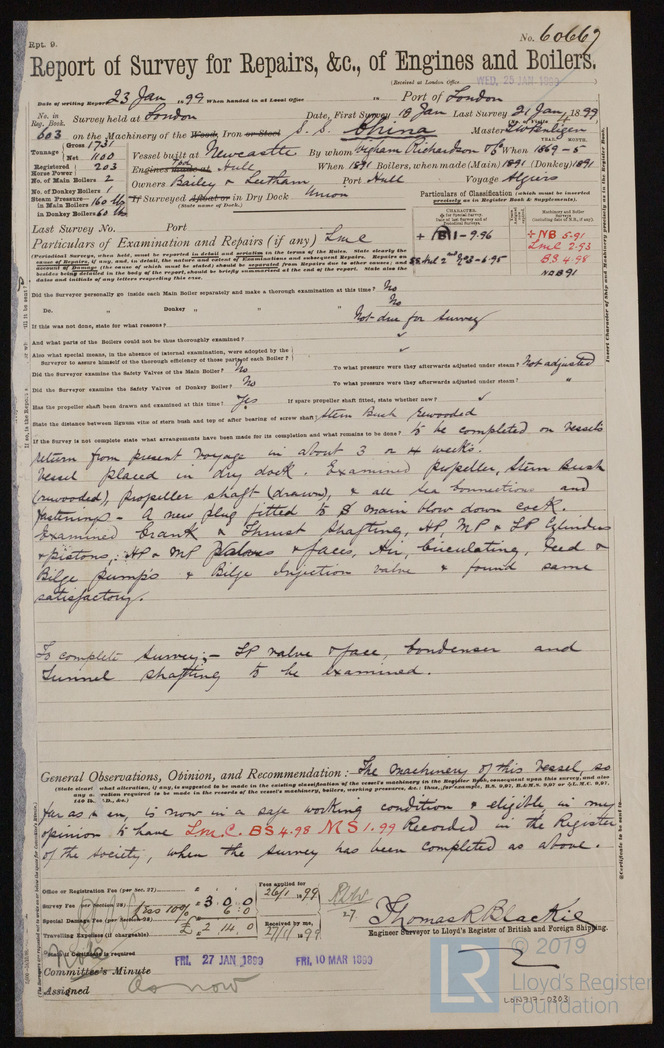 Rpt. 9.
No. 60667
Report of Survey for Repairs, &c., of Engines and Boilers.
(Received at London Office WED. 25 JAN 1899
Date of writing Report 23 Jan 1899 When handed in at Local Office 18 Port of London
No. in Reg. Book. 603 Survey held at London Date, First Survey 18 Jan Last Survey 21 Jan 1899
on the Machinery of the Wood, Iron or Steel S. S. China Master
Tonnage Gross 1731 Net 1100
Vessel built at Newcastle By whom Wigham Richardson & Co When 1869 - 5
Registered Horse Power 203
Engines made at Hull When 1891 Boilers, when made (Main) 1891 (Donkey) 1891
No. of Main Boilers 2
Owners Bailey & Leetham Port Hull Voyage Algiers
No. of Donkey Boilers 1
Steam Pressure in Main Boilers 160 lbs
in Donkey Boilers 60 lbs
If Surveyed Afloat or in Dry Dock Union
(State name of Dock.)
Particulars of Classification (which must be inserted precisely as in Register Book & Supplements).
CHARACTER.
Machinery and Boiler Surveys
+ B1 - 9.96
+ NB 5-91
LMC 2-93
BS 4.98
NDB 91
Last Survey No. Port
Particulars of Examination and Repairs (if any) LMC
(Periodical Surveys, when held, must be reported in detail and seriatim in the terms of the Rules. State clearly the cause of Repairs, if any, and, in detail, the nature and extent of Examinations and subsequent Repairs. Repairs on account of Damage (the cause of which must be stated) should be separated from Repairs due to other causes; and besides being detailed in the body of the report, should be briefly summarised at the end of the report. State also the dates and initials of any letters respecting this case.
Did the Surveyor personally go inside each Main Boiler separately and make a thorough examination at this time? No
Do. " Donkey " " " No
If this was not done, state for what reasons? Not due for survey
And what parts of the Boilers could not be thus thoroughly examined?
Also what special means, in the absence of internal examination, were adopted by the Surveyor to assure himself of the thorough efficiency of those parts of each Boiler?
Did the Surveyor examine the Safety Valves of the Main Boiler? No To what pressure were they afterwards adjusted under steam? Not adjusted
Did the Surveyor examine the Safety Valves of Donkey Boiler? No To what pressure were they afterwards adjusted under steam? "
Has the propeller shaft been drawn and examined at this time? Yes If spare propeller shaft fitted, state whether new?
State the distance between lignum vitæ of stern bush and top of after bearing of screw shaft: Stern Bush rewooded
If the Survey is not complete state what arrangements have been made for its completion and what remains to be done? To be completed on vessels
return from present voyage in about 3 or 4 weeks.
Vessel placed in dry dock. Examined propeller, Stern Bush
(rewooded), propeller shaft (drawn), & all sea connections and
fastenings - A new plug fitted to S main blow down cock.
Examined Crank & Thrust Shafting, HP MP & LP Cylinders
& pistons; HP & MP Valves & faces, Air, Circulating, Feed &
Bilge pumps & Bilge Injection valve & found same
satisfactory.
To complete Survey:- LP valve & face, Condenser and
Tunnel shafting to be examined.
General Observations, Opinion, and Recommendation: The machinery of this vessel, so
far as seen, is now in a safe working condition & eligible in my
opinion to have LMC. BS 4.98 MS 1.99 Recorded in the Register
of the Society, when the survey has been completed as above.
Office or Registration Fee (per Sec. 27)
Survey Fee (per Section 28) £ 3 : 0 : 0
Less 10% 6 : 0
Special Damage Fee (per Section 28)
£ 2 14 0
Travelling Expenses (if chargeable)
Fees applied for 26/1 1899
Received by me, 27/1 1899
Thomas R Blackie
Engineer Surveyor to Lloyd's Register of British and Foreign Shipping.
Committee's Minute FRI. 27 JAN 1899 FRI. 10 MAR 1899
Assigned As now
© 2019
LR Lloyd's Register Foundation
LON717-0303